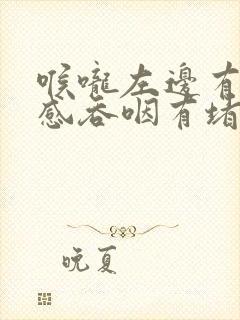 喉嚨左邊有
感吞咽有堵
晚夏